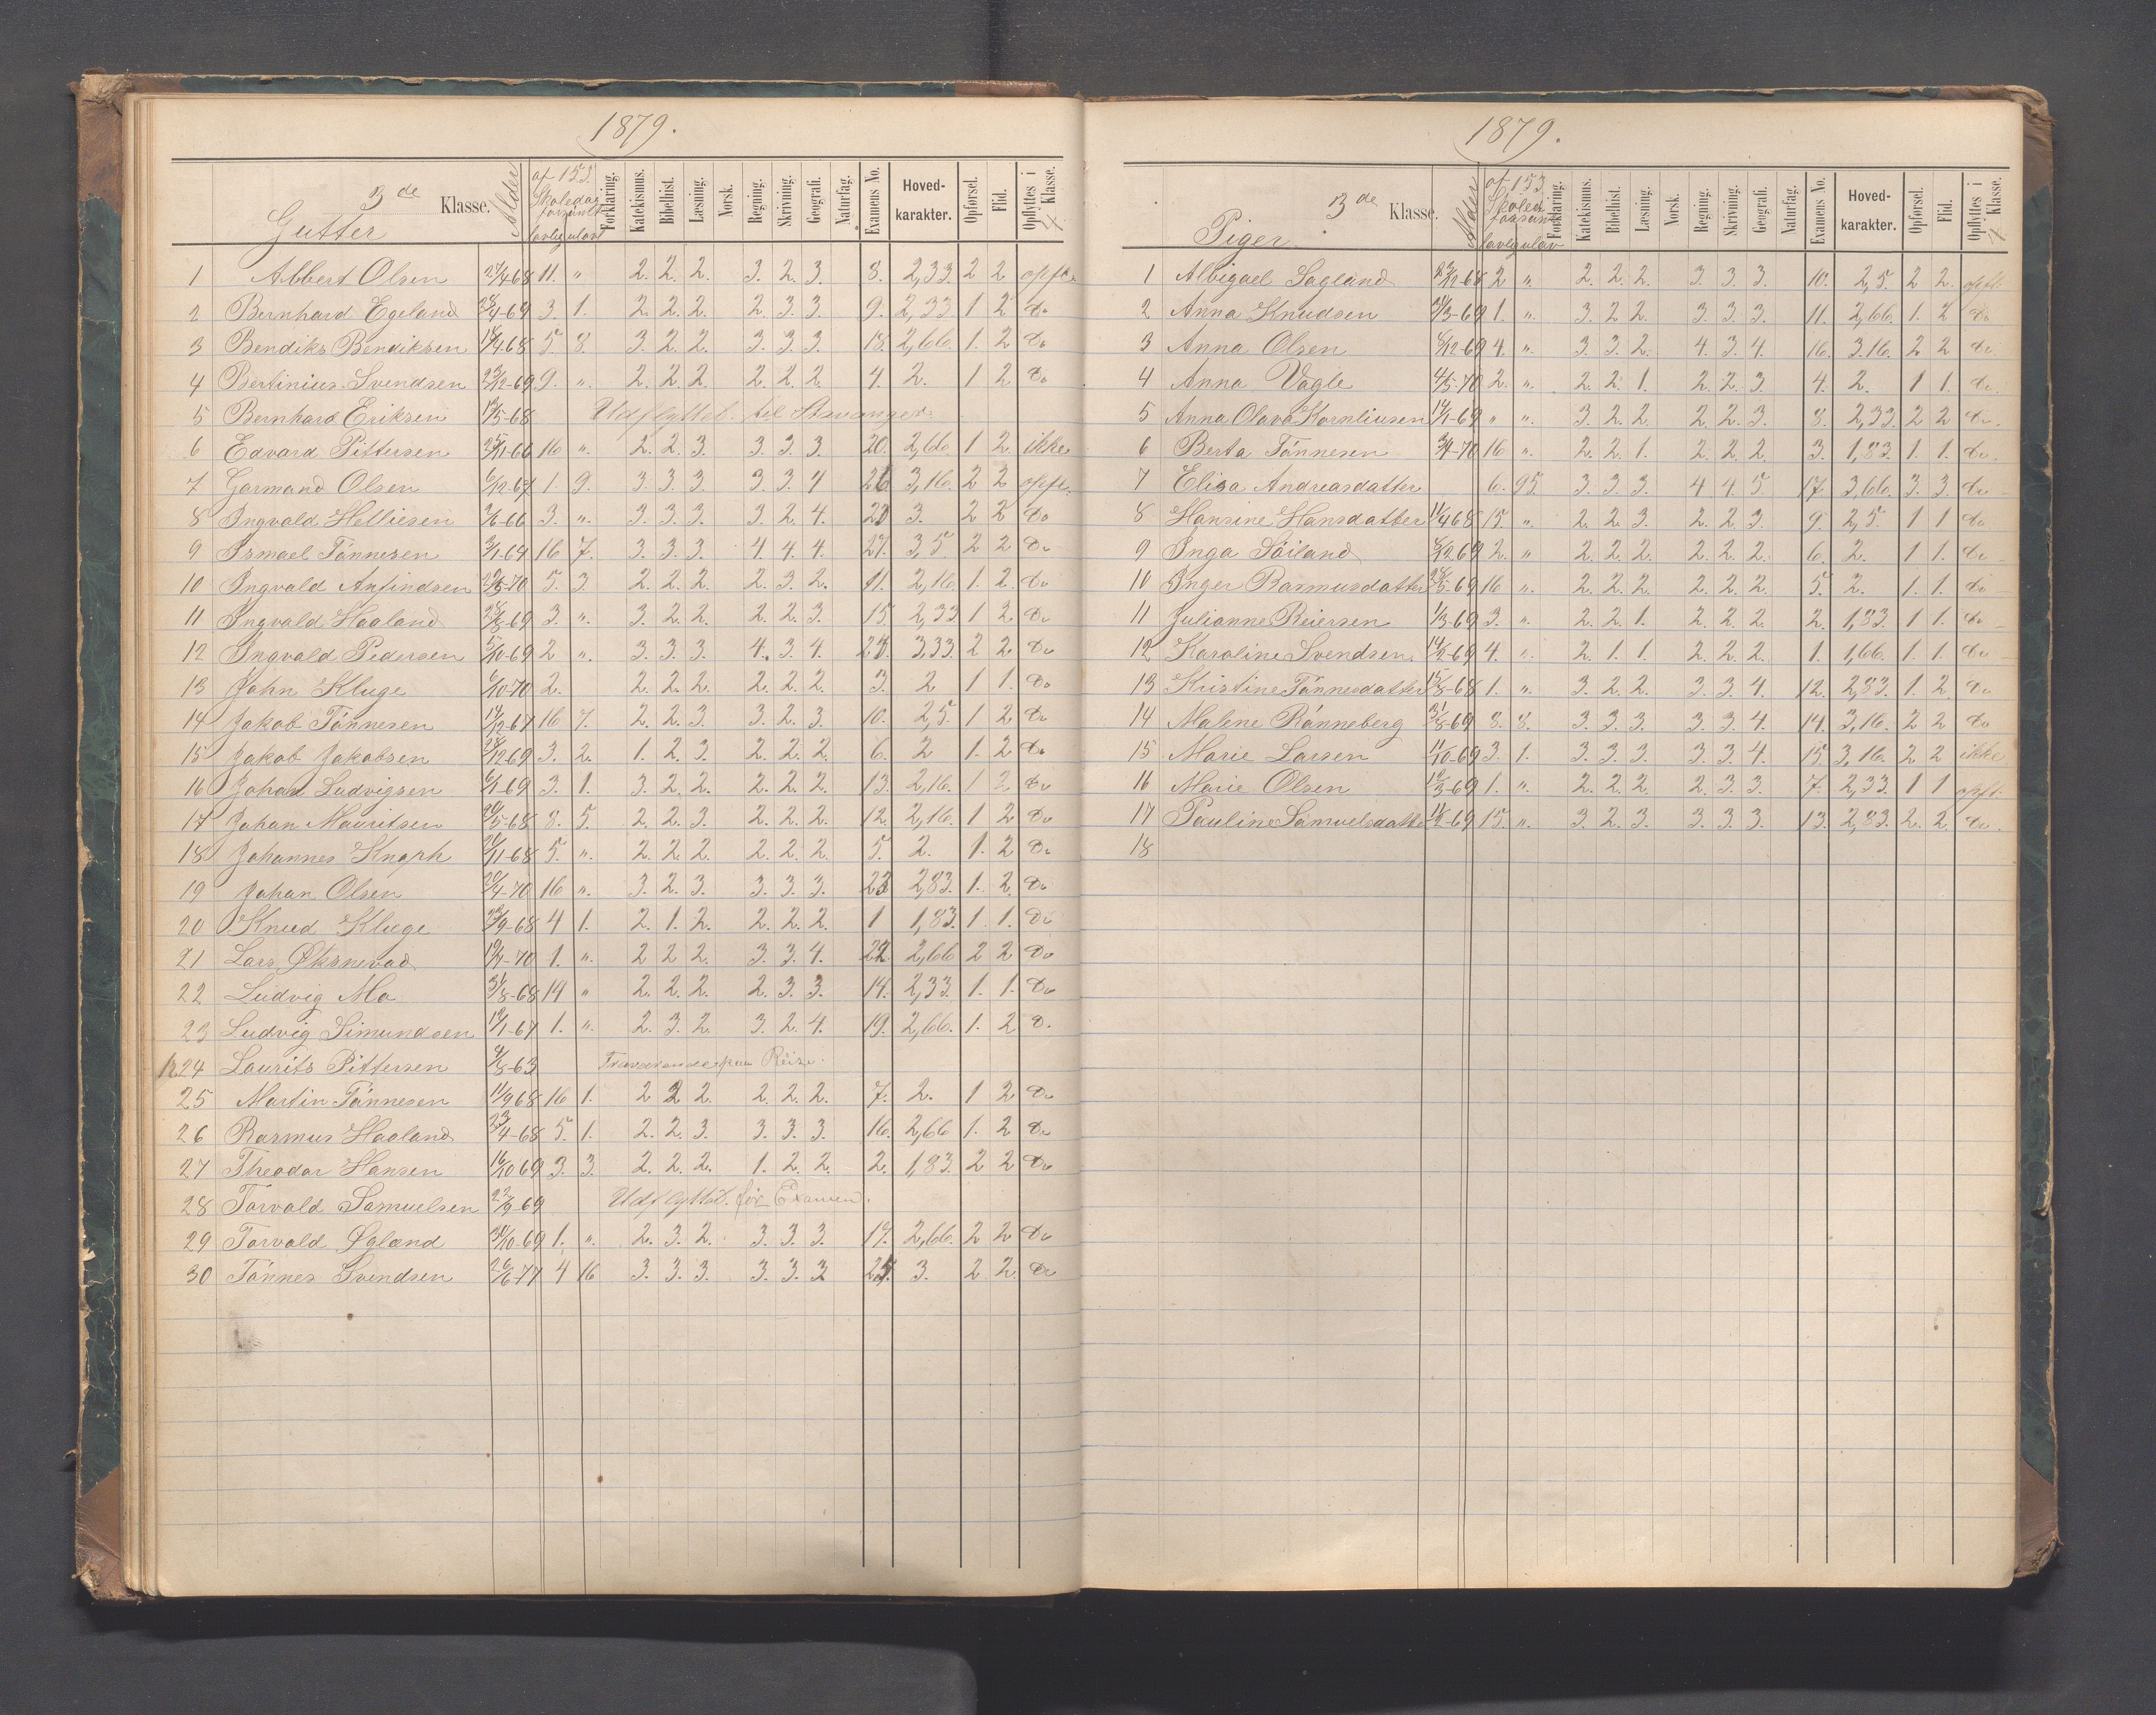 1879.
3de Klasse. Gutter
Alder af 153 Skoledage forsømt lovlig ulovl Forklaring. Katekismus. Bibelhist. Læsning. Norsk. Regning. Skrivning. Geografi. Naturfag. Examens No. Hoved-karakter. Opførsel. Flid. Opflyttes i 4 Klasse.
1 Albert Olsen 27/4-68 11. „ 2. 2. 2. 3. 2. 3. 8. 2,33 2 2 opft.
2 Bernhard Egeland 28/4-69 3. 1. 2. 2. 2. 2. 3. 3. 9. 2,33 1 2 do
3 Bendiks Bendiksen 18/4-68 5. 8. 3. 2. 2. 3. 3. 3. 18. 2,66. 1. 2 do
4 Bertinius Svendsen 23/12-69 9. „ 2. 2. 2. 2. 2. 2. 4. 2. 1 2 do
5 Bernhard Eriksen 19/5-68 Udflyttet til Stavanger.
6 Edvard Pittersen 25/11-66 16 „ 2. 2. 3 3. 3. 3. 20. 2,66 1 2. ikke
7 Garmand Olsen 6/12-67 1. 9. 3. 3. 3. 3. 3. 4 26 3,16. 2 2 opft.
8 Ingvald Helliesen 9/6-66 3. „ 3. 3. 3. 3. 2. 4. 3. 2 2 do
9 Ismael Tønnesen 3/1-64 16 7. 3. 3. 3. 4. 4. 4. 27. 3,5 2 2 do
10 Ingvald Anfindsen 29/5-70 5. 3. 2. 2. 2. 2. 3. 2. 11. 2,16. 1. 2 do
11 Ingvald Haaland 28/8-69 3. „ 3. 2. 2. 2. 2. 3 15. 2,33 1 2 do
12 Ingvald Pedersen 5/10-69 2 „ 3. 3. 3 4. 3. 4. 3,33 2 2 do
13 John Kluge 6/10-70 2. 2. 2. 2. 2. 2. 2. 3. 2 1 1. do
14 Jakob Tønnesen 14/12-67 16 7. 2. 2. 3 3. 2. 3. 10. 2,5. 1 2 do
15 Jakob Jakobsen 28/12-69 3. 2. 1. 2. 3 2. 2. 2. 6. 2 1. 2 do
16 Johan Ludvigsen 6/1-69 3. 1. 3. 2. 2. 2. 2. 2. 13. 2,16. 1 2 do
17 Johan Mauritsen 20/5-68 8. 5. 2. 2. 3 2. 2. 2. 12. 2,16. 1 2 do
18 Johannes Knaph 20/11-68 5. „ 2. 2. 2 2. 2. 2 5. 2. 1. 2 do
19 Johan Olsen 20/4-70 16 „ 3. 2. 3. 3. 3. 3. 23 2,83. 1. 2. do
20 Knud Kluge 29/9-68 4 1. 2. 1. 2. 2. 2. 2. 1 1,83. 1. 1. do
21 Lars Øksnevad 19/4-70 1. „ 2 2 2. 3. 3. 4. 22. 2,66 2 2 do
22 Ludvig Mo 31/8-68 14 „ 2. 2. 2. 2. 3. 3. 14. 2,33. 1. 1. do
23 Ludvig Simundsen 19/1-67 1. „ 2. 3. 2. 3. 2. 4. 19. 2,66. 1. 2 do.
24 Laurits Pittersen 4/8-63 Fraværende paa Reise.
25 Martin Tønnesen 11/9 68 16 1. 2 2 2. 2. 2. 2. 7. 2. 1 2 do
26 Rasmus Haaland 23/4-68 5. 1. 2. 2. 3. 3. 3. 3. 16. 2,66 1. 2 do
27 Theodor Hansen 16/10 69 3. 3. 2. 2. 2. 1. 2. 2. 2. 1,83. 2 2 do
28 Torvald Samuelsen 22/9-69 Udflyttet før Examen.
29 Torvald Øgland 30/10-69 1. „ 2. 3. 2. 3. 3. 3. 17. 2,66. 2 2 do
30 Tønnes Svendsen 26/6-77 4 16 3. 3. 3. 3. 3. 3 25 3. 2 2. do
1879.
3de Klasse. Piger
Alder af 153 Skoled forsømt lovlig ulov Forklaring. Katekismus. Bibelhist. Læsning. Norsk. Regning. Skrivning. Geografi. Naturfag. Examens No. Hoved-karakter. Opførsel. Flid. Opflyttes i 4 Klasse.
1 Albigael Sagland 23/12-68 2 „ 2. 2. 2. 3. 3. 3. 10. 2,5. 2 2. opft.
2 Anna Knudsen 24/3-69 1. „ 3. 2 2. 3. 3. 3. 11. 2,66. 1. 2 do
3 Anna Olsen 8/12-69 4. „ 3. 3. 2. 4. 3. 4. 16. 3,16. 2 2 do
4 Anna Vagle 4/5-70 2. „ 2. 2. 1. 2. 2. 3. 4. 2. 1 1. do
5 Anna Olava Kornliusen 14/1-69 „ „ 3. 2. 2. 2. 2. 3. 8. 2,33. 2 2 do.
6 Berta Tønnesen 3/4-70 16 „ 2. 2. 1. 2. 2. 2. 3. 1,83. 1. 1. do.
7 Elisa Andreasdatter 6. 95. 3. 3. 3. 4 4. 5. 17. 3,66. 3. 3. do
8 Hansine Hansdatter 11/4 68 15. „ 2. 2. 3. 2. 2. 3. 9. 2,5. 1 1 do
9 Inga Söiland 8/12 69 2. „ 2. 2. 2. 2. 2. 2. 6. 2. 1 1. do
10 Inger Rasmusdatter 28/5-69 16 „ 2. 2. 2. 2. 2. 2. 5. 2. 1. 1. do
11 Julianne Reiersen 1/3-69 3. „ 2. 2. 1. 2. 2. 2. 2. 1,83. 1 1. do
12 Karoline Svendsen 14/2-69 4. „ 2. 1. 1. 2. 2. 2. 1. 1,66. 1. 1. do
13 Kristine Tønnesdatter 15/8-68 1. „ 3. 2. 2. 3. 3. 4. 12. 2,83. 1. 2. do
14 Malene Rønneberg 31/8-69 8. 8. 3. 3. 3. 3. 3. 4. 14. 3,16. 2 2 do
15 Marie Larsen 11/10-69 3. 1. 3. 3. 3. 3. 3. 4. 15. 3,16. 2 2 ikke
16 Marie Olsen 19/3-69 1. „ 2. 2. 2. 2. 3. 3. 7. 2,33. 1 1 opft.
17 Pauline Samuelsdatte 11/2-69 15. „ 3. 2. 3. 3. 3. 3. 13. 2,83. 2. 2 do.
18